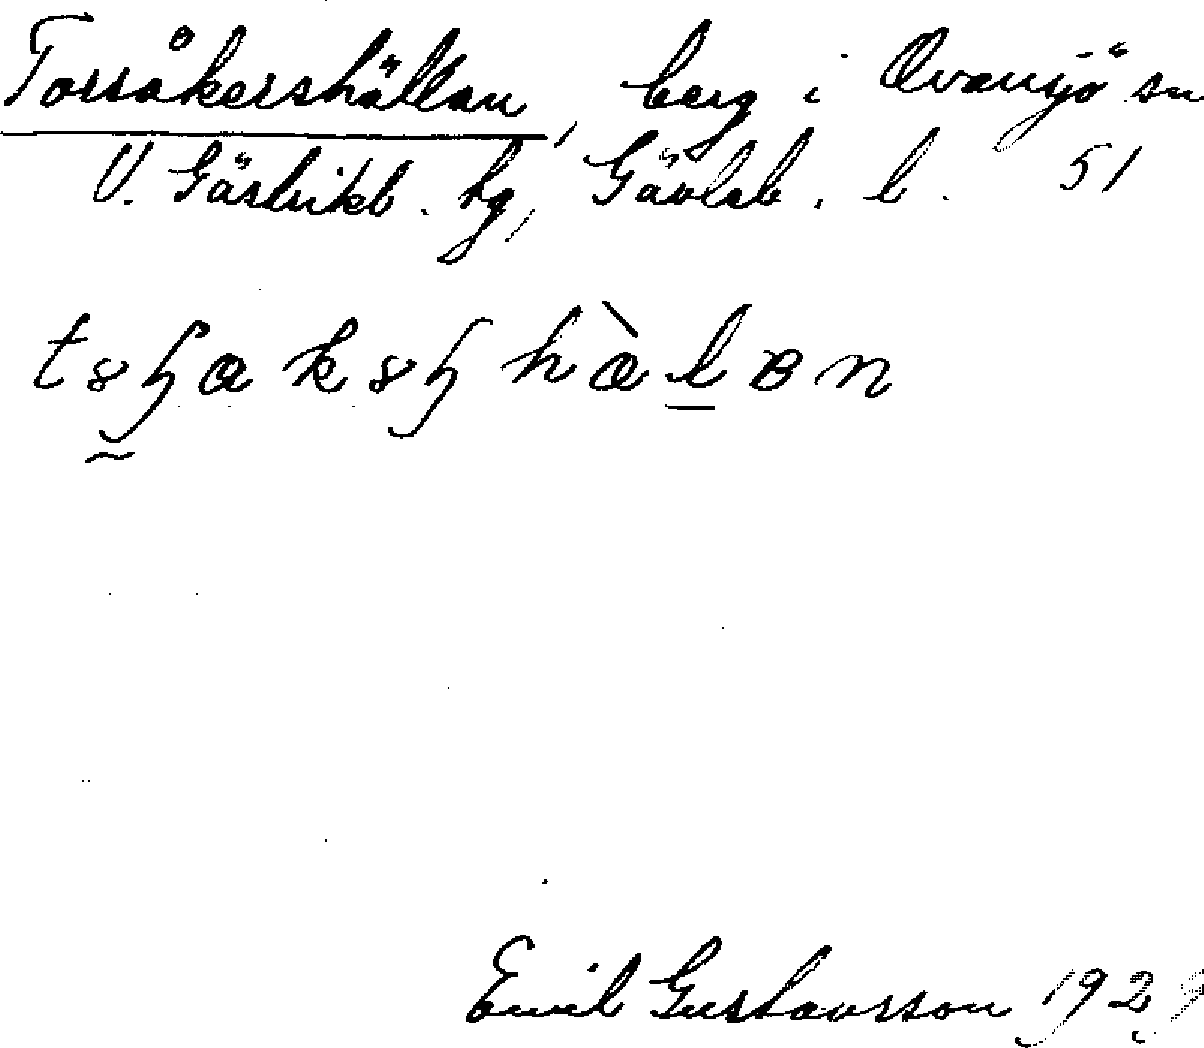 Torsåkershällan, berg i Ovansjö sn
V. Gästrikl. hg, Gävleb. l. 51
Emil Gustavsson 1929